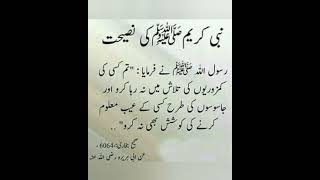 نبی کریم ﷺ کی نصیحت
رسول اللہ ﷺ نے فرمایا : "تم کسی کی
کمزوریوں کی تلاش میں نہ رہا کرو اور
جاسوسوں کی طرح کسی کے عیب معلوم
کرنے کی کوشش بھی نہ کرو" ..
صحیح بخاری : 6064،
عن ابی ہریرہ رضی اللہ عنہ